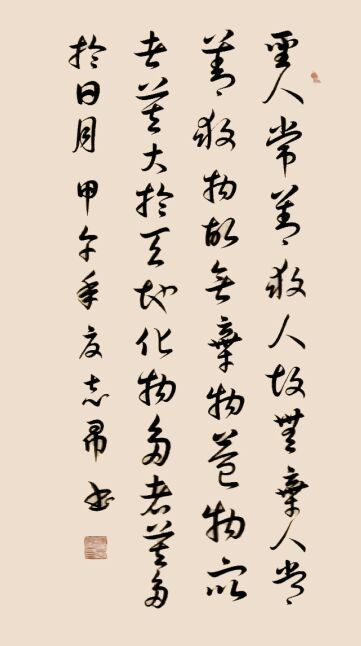 聖人常善救人故無棄人常
善救物故無棄物蓋物眾
者莫大於天地化物多者莫多
於日月 甲午年 志 書